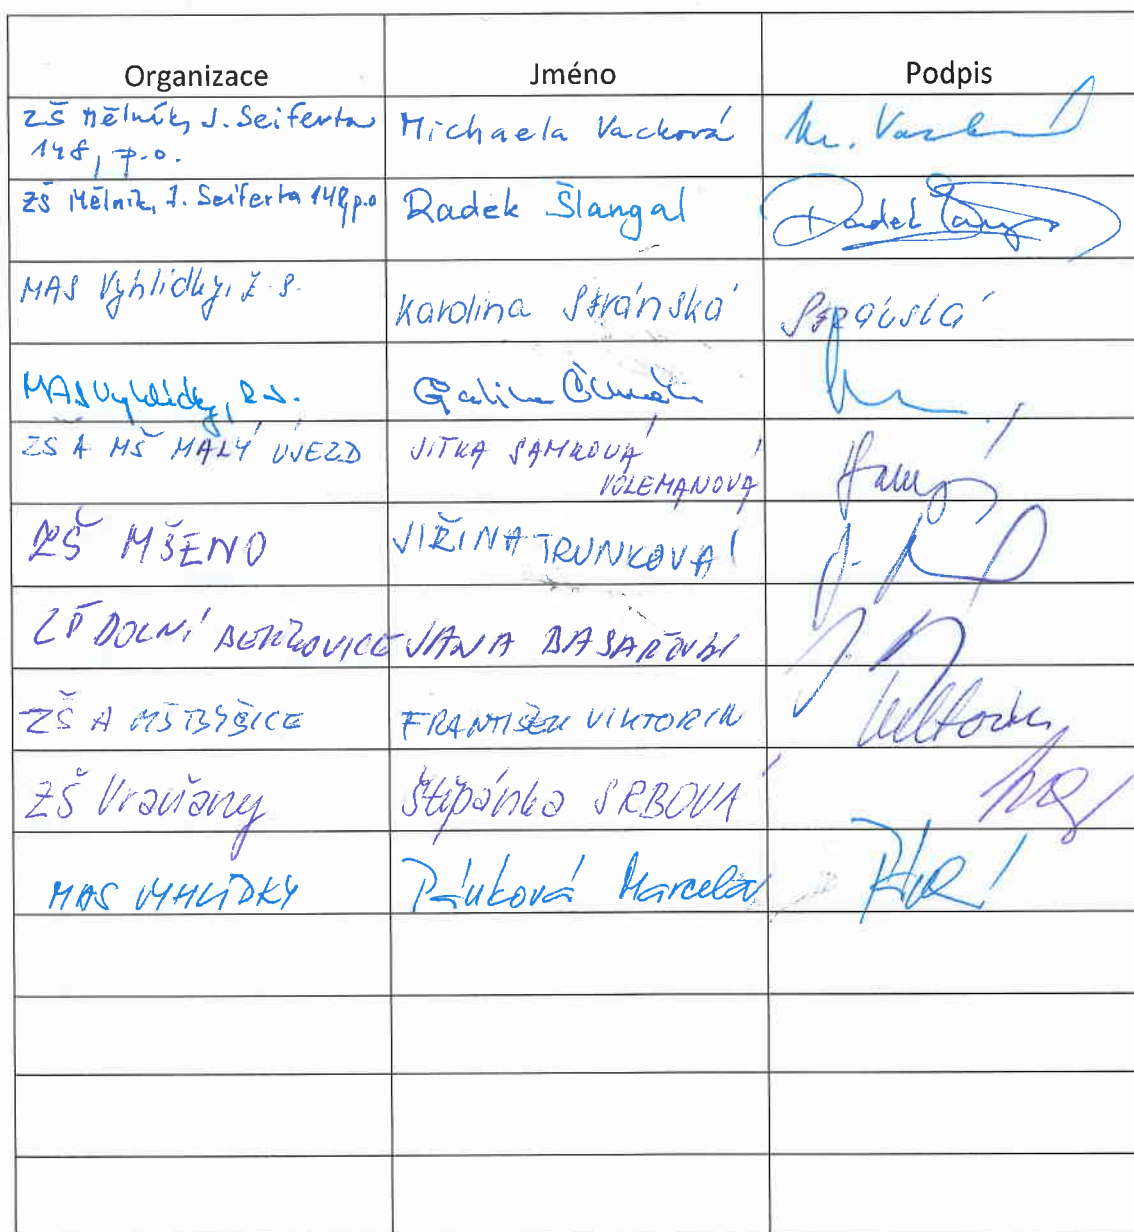 Organizace Jméno Podpis
ZŠ Mělník, J. Seiferta Michaela Vacková M.
148, p.o.
ZŠ Mělník, J. Seiferta 148, p.o Radek Šlangal Radek
MAS Vyhlídky, z. s. Karolina Stránská Stránská
MAS Vyhlídky, z.s. Galina
ZŠ A MŠ MALÝ ÚJEZD JITKA SAMKOVÁ
VOLEMANOVÁ
ZŠ MŠENO JIŘINA TRUNKOVÁ
ZŠ DOLNÍ BEŘKOVICE JANA
ZŠ A MŠ BYŠICE FRANTIŠEK VIKTORIN Viktorin
ZŠ Vraňany Štěpánka SRBOVÁ
MAS VYHLÍDKY Marcela